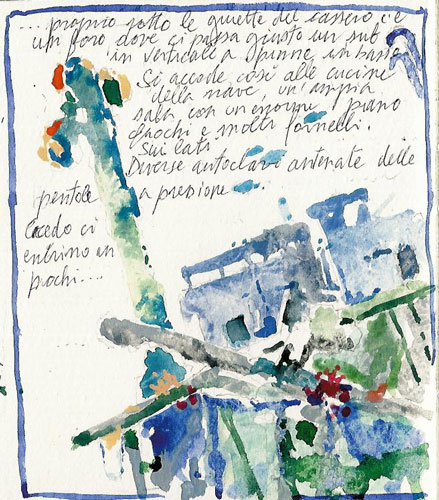 ... proprio sotto le gruette del cassero, c'è
un foro dove ci passa giusto un sub
in verticale a pinne in basso
Si accede così alle cucine
della nave, un'ampia
sala, con un enorme piano
fuochi e molti fornelli.
Sui lati
Diverse autoclavi antenate delle
pentole a pressione ...
Credo ci
entrino in
pochi....